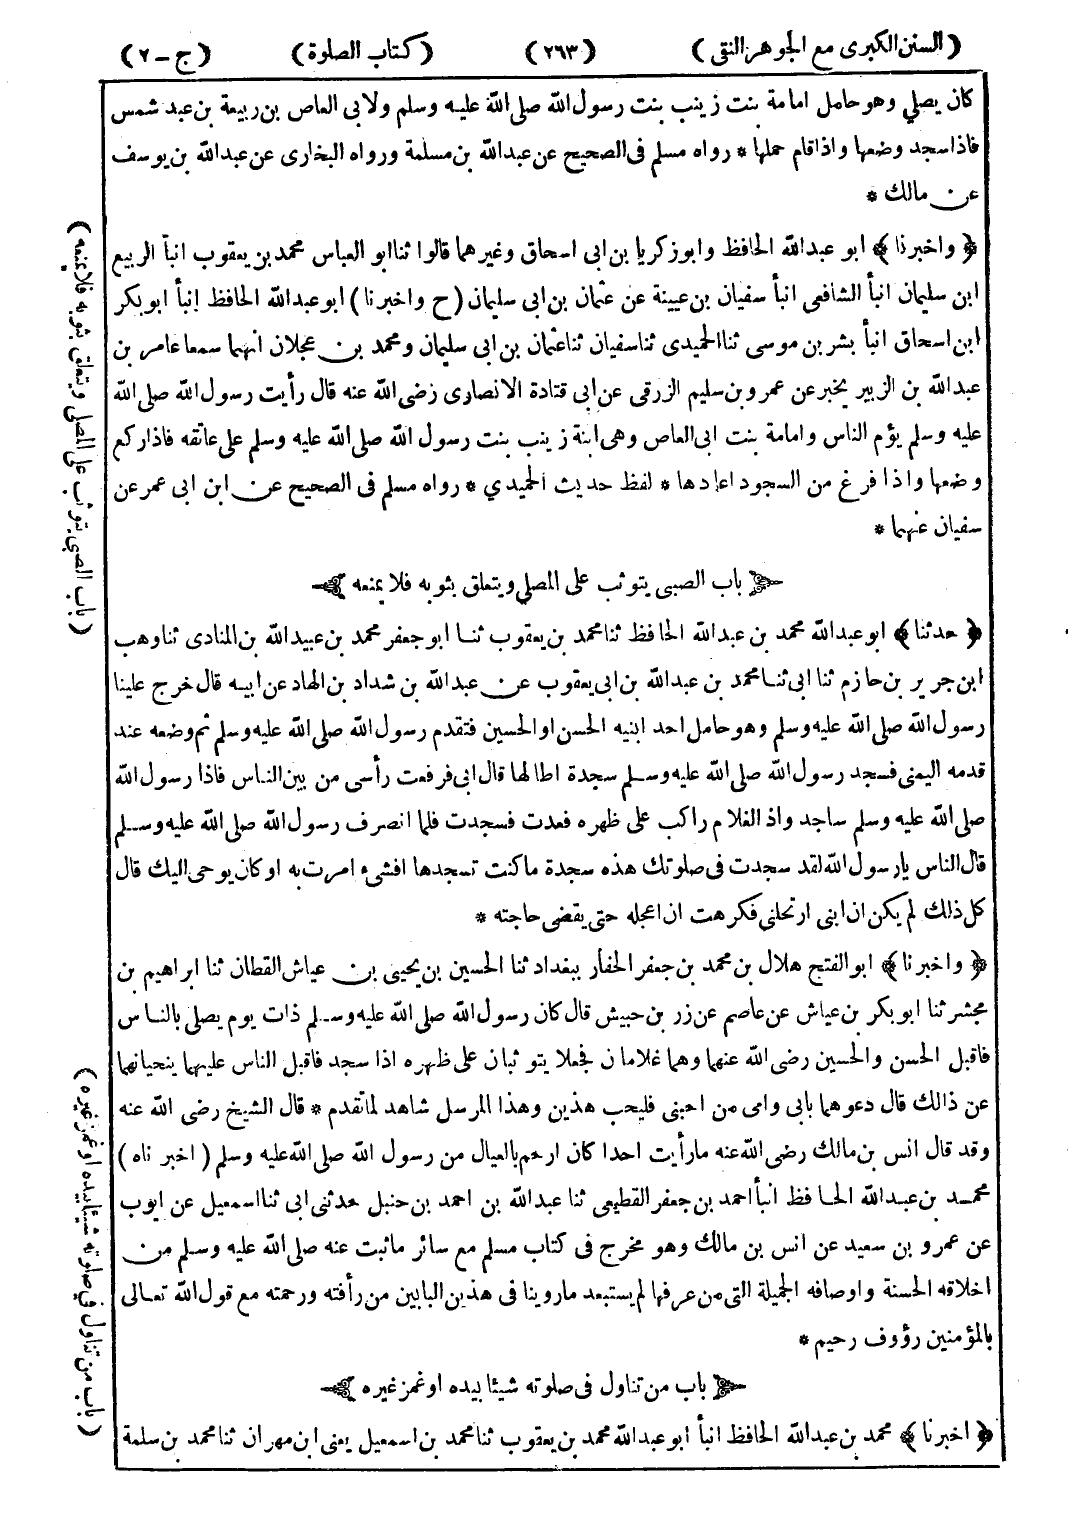 (السنن الكبرى مع الجوهر النقى) (٢٦٣) (كتاب الصلوة) (ج - ٢)
كان يصلي وهو حامل امامة بنت زينب بنت رسول الله صلى الله عليه وسلم ولابى العاص بن ربيعة بن عبد شمس
فاذا سجد وضعها واذا قام حملها * رواه مسلم فى الصحيح عن عبدالله بن مسلمة ورواه البخارى عن عبدالله بن يوسف
عن مالك *
﴿ واخبرنا ﴾ ابو عبدالله الحافظ وابو زكريا بن ابى اسحاق وغيرهما قالوا ثنا ابو العباس محمد بن يعقوب انبأ الربيع
ابن سليمان انبأ الشافعى انبأ سفيان بن عيينة عن عثمان بن ابى سليمان (ح واخبرنا) ابو عبدالله الحافظ انبأ ابو بكر
ابن اسحاق انبأ بشر بن موسى ثنا الحميدى ثنا سفيان ثنا عثمان بن ابى سليمان ومحمد بن عجلان انهما سمعا عامر بن
عبدالله بن الزبير يخبر عن عمرو بن سليم الزرقى عن ابى قتادة الانصارى رضى الله عنه قال رأيت رسول الله صلى الله
عليه وسلم يؤم الناس وامامة بنت ابى العاص وهى ابنة زينب بنت رسول الله صلى الله عليه وسلم على عاتقه فاذا ركع
وضعها واذا فرغ من السجود اعادها * لفظ حديث الحميدي * رواه مسلم فى الصحيح عن ابن ابى عمر عن
سفيان عنهما *
باب الصبى يتوثب على المصلي ويتعلق بثوبه فلا يمنعه
﴿ حدثنا ﴾ ابو عبدالله محمد بن عبدالله الحافظ ثنا محمد بن يعقوب ثنا ابو جعفر محمد بن عبيدالله بن المنادى ثنا وهب
ابن جرير بن حازم ثنا ابى ثنا محمد بن عبدالله بن ابى يعقوب عن عبدالله بن شداد بن الهاد عن ابيه قال خرج علينا
رسول الله صلى الله عليه وسلم وهو حامل احد ابنيه الحسن او الحسين فتقدم رسول الله صلى الله عليه وسلم ثم وضعه عند
قدمه اليمنى فسجد رسول الله صلى الله عليه وسلم سجدة اطالها قال ابى فرفعت رأسى من بين الناس فاذا رسول الله
صلى الله عليه وسلم ساجد واذ الغلام راكب على ظهره فعدت فسجدت فلما انصرف رسول الله صلى الله عليه وسلم
قال الناس يا رسول الله لقد سجدت فى صلوتك هذه سجدة ما كنت تسجدها افشىء امرت به او كان يوحى اليك قال
كل ذلك لم يكن ان ابنى ارتحلني فكرهت ان اعجله حتى يقضى حاجته *
﴿ واخبرنا ﴾ ابو الفتح هلال بن محمد بن جعفر الحفار ببغداد ثنا الحسين بن يحيى بن عياش القطان ثنا ابراهيم بن
مجشر ثنا ابو بكر بن عياش عن عاصم عن زر بن حبيش قال كان رسول الله صلى الله عليه وسلم ذات يوم يصلى بالناس
فاقبل الحسن والحسين رضى الله عنهما وهما غلامان فجعلا يتوثبان على ظهره اذا سجد فاقبل الناس عليهما ينحيانهما
عن ذالك قال دعوهما بابى وامى من احبنى فليحب هذين وهذا المرسل شاهد لما تقدم * قال الشيخ رضى الله عنه
وقد قال انس بن مالك رضى الله عنه ما رأيت احدا كان ارحم بالعيال من رسول الله صلى الله عليه وسلم (اخبرناه)
محمد بن عبدالله الحافظ انبأ احمد بن جعفر القطيعى ثنا عبدالله بن احمد بن حنبل حدثنى ابى ثنا اسمعيل عن ايوب
عن عمرو بن سعيد عن انس بن مالك وهو مخرج فى كتاب مسلم مع سائر ما ثبت عنه صلى الله عليه وسلم من
اخلاقه الحسنة واوصافه الجميلة التى من عرفها لم يستبعد ما روينا فى هذين البابين من رأفته ورحمته مع قول الله تعالى
بالمؤمنين رؤوف رحيم *
باب من تناول فى صلوته شيئا بيده او غمز غيره
﴿ اخبرنا ﴾ محمد بن عبدالله الحافظ انبأ ابو عبدالله محمد بن يعقوب ثنا محمد بن اسمعيل يعنى ابن مهران ثنا محمد بن سلمة
(باب الصبى يتوثب على المصلى ويتعلق بثوبه فلا يمنعه)
(باب من تناول فى صلوته شيئا بيده او غمز غيره)